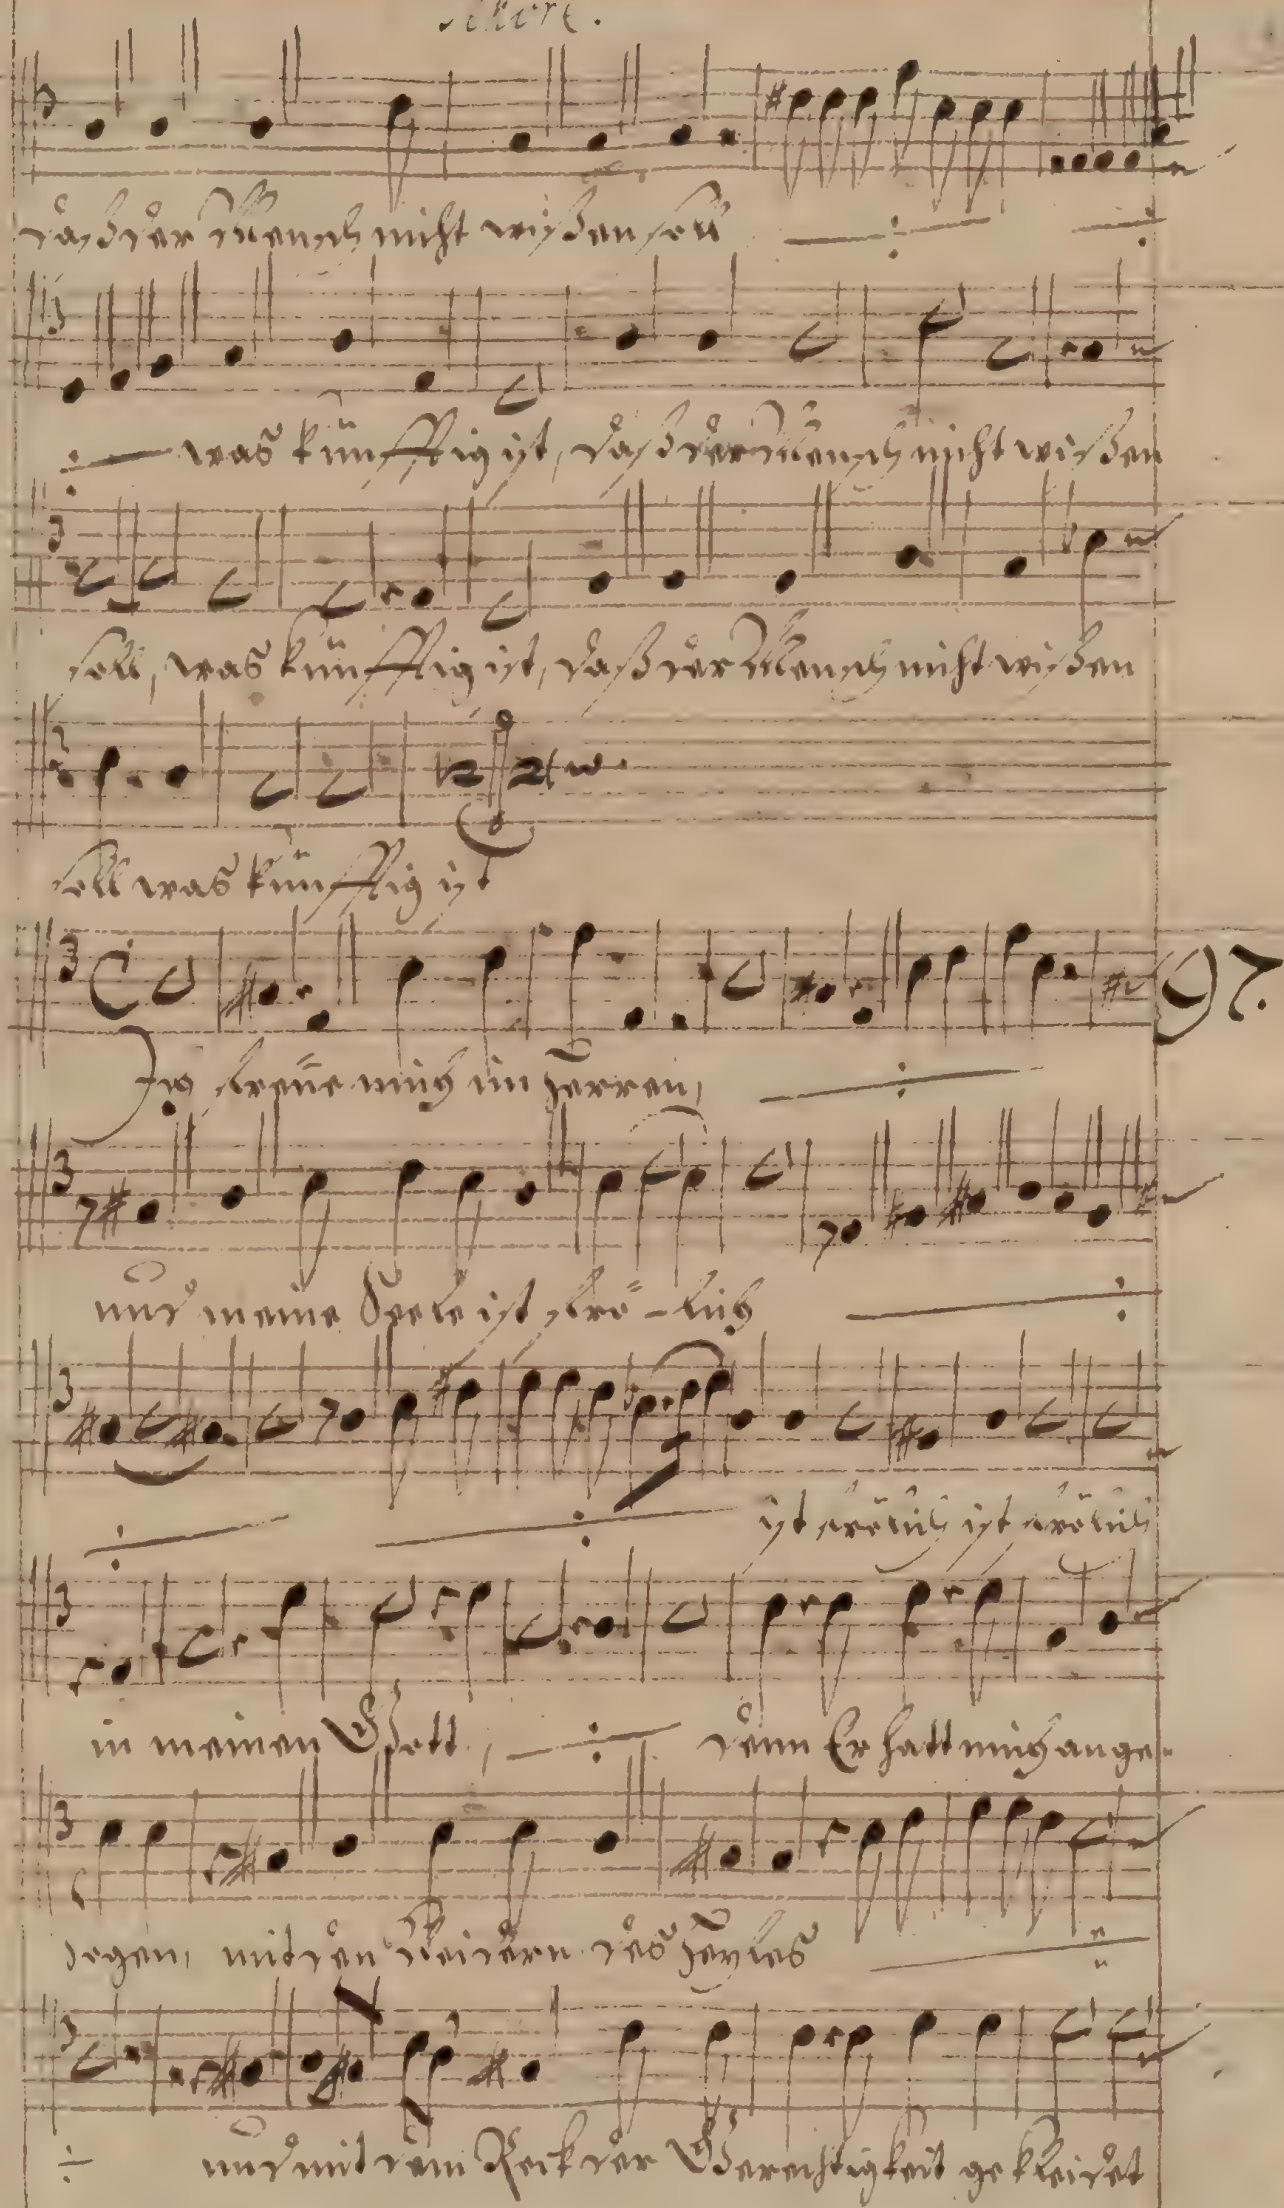 daß der Mensch nicht wißen soll
was künfftig ist, daß der Mensch nicht wißen
soll, was künfftig ist, daß der Mensch nicht wißen
soll was künfftig ist
97.
Ich freüe mich im Herren,
und meine Seele ist frö-lich
ist frölich ist frölich
in meinen Gott, denn Er hatt mich ange-
zogen, mit den Kleidern des Heyles
und mit dem Rock der Gerechtigkeit gekleidet